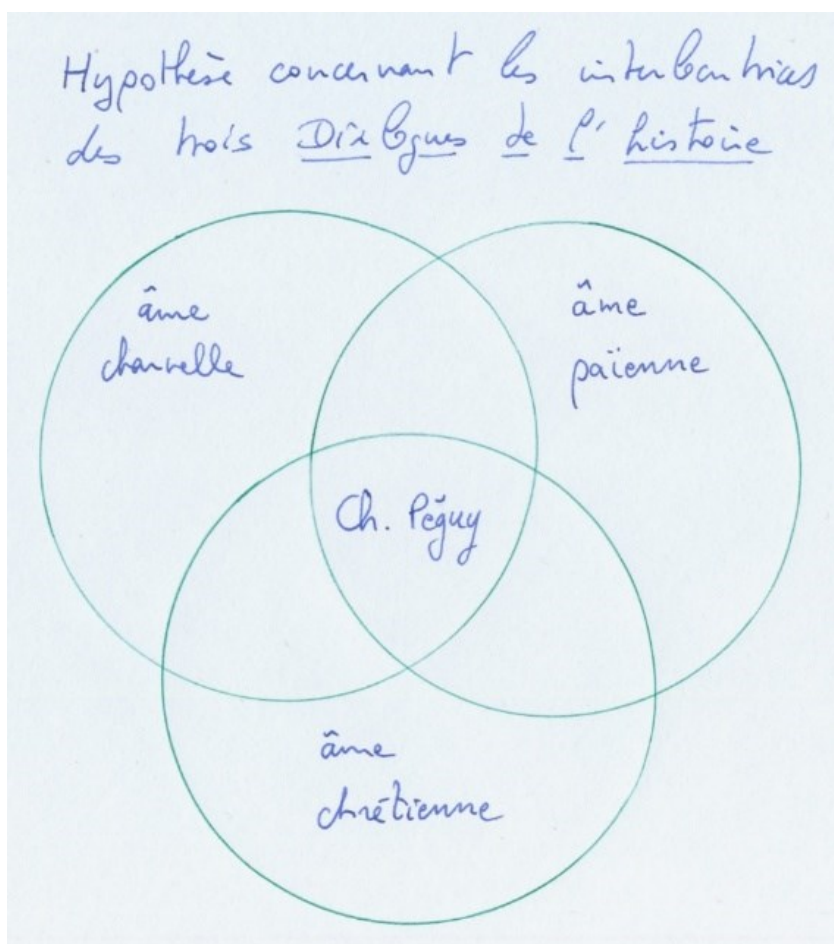 Hypothèse concernant les interlocutrices
des trois Dialogues de l'histoire
âme
charnelle
âme
païenne
Ch. Péguy
âme
chrétienne